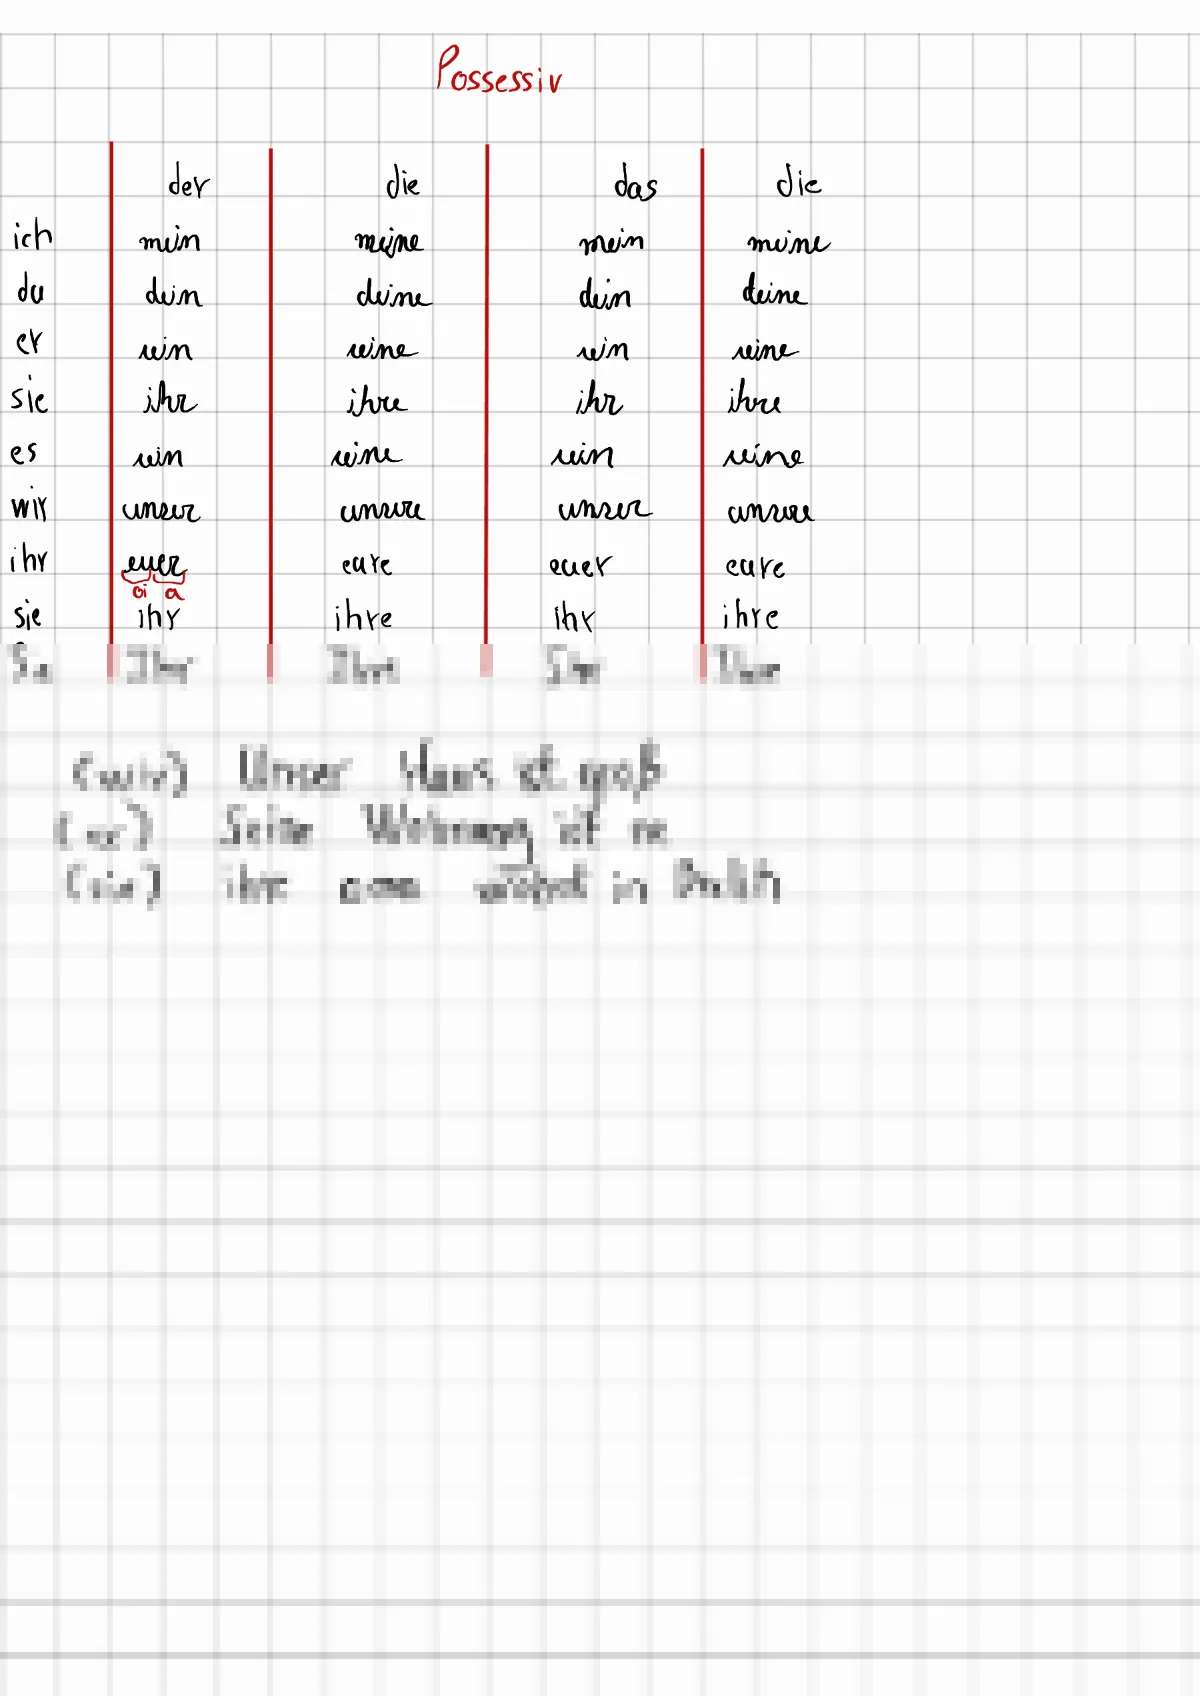 Possessiv
der die das die
ich mein meine mein meine
du dein deine dein deine
er sein seine sein seine
sie ihr ihre ihr ihre
es sein seine sein seine
wir unser unsere unser unsere
ihr euer eure euer eure
oi a
sie ihr ihre ihr ihre
(wir) Unser Haus ist groß
(er) Seine Wohnung ist
(sie) ihre wohnt in